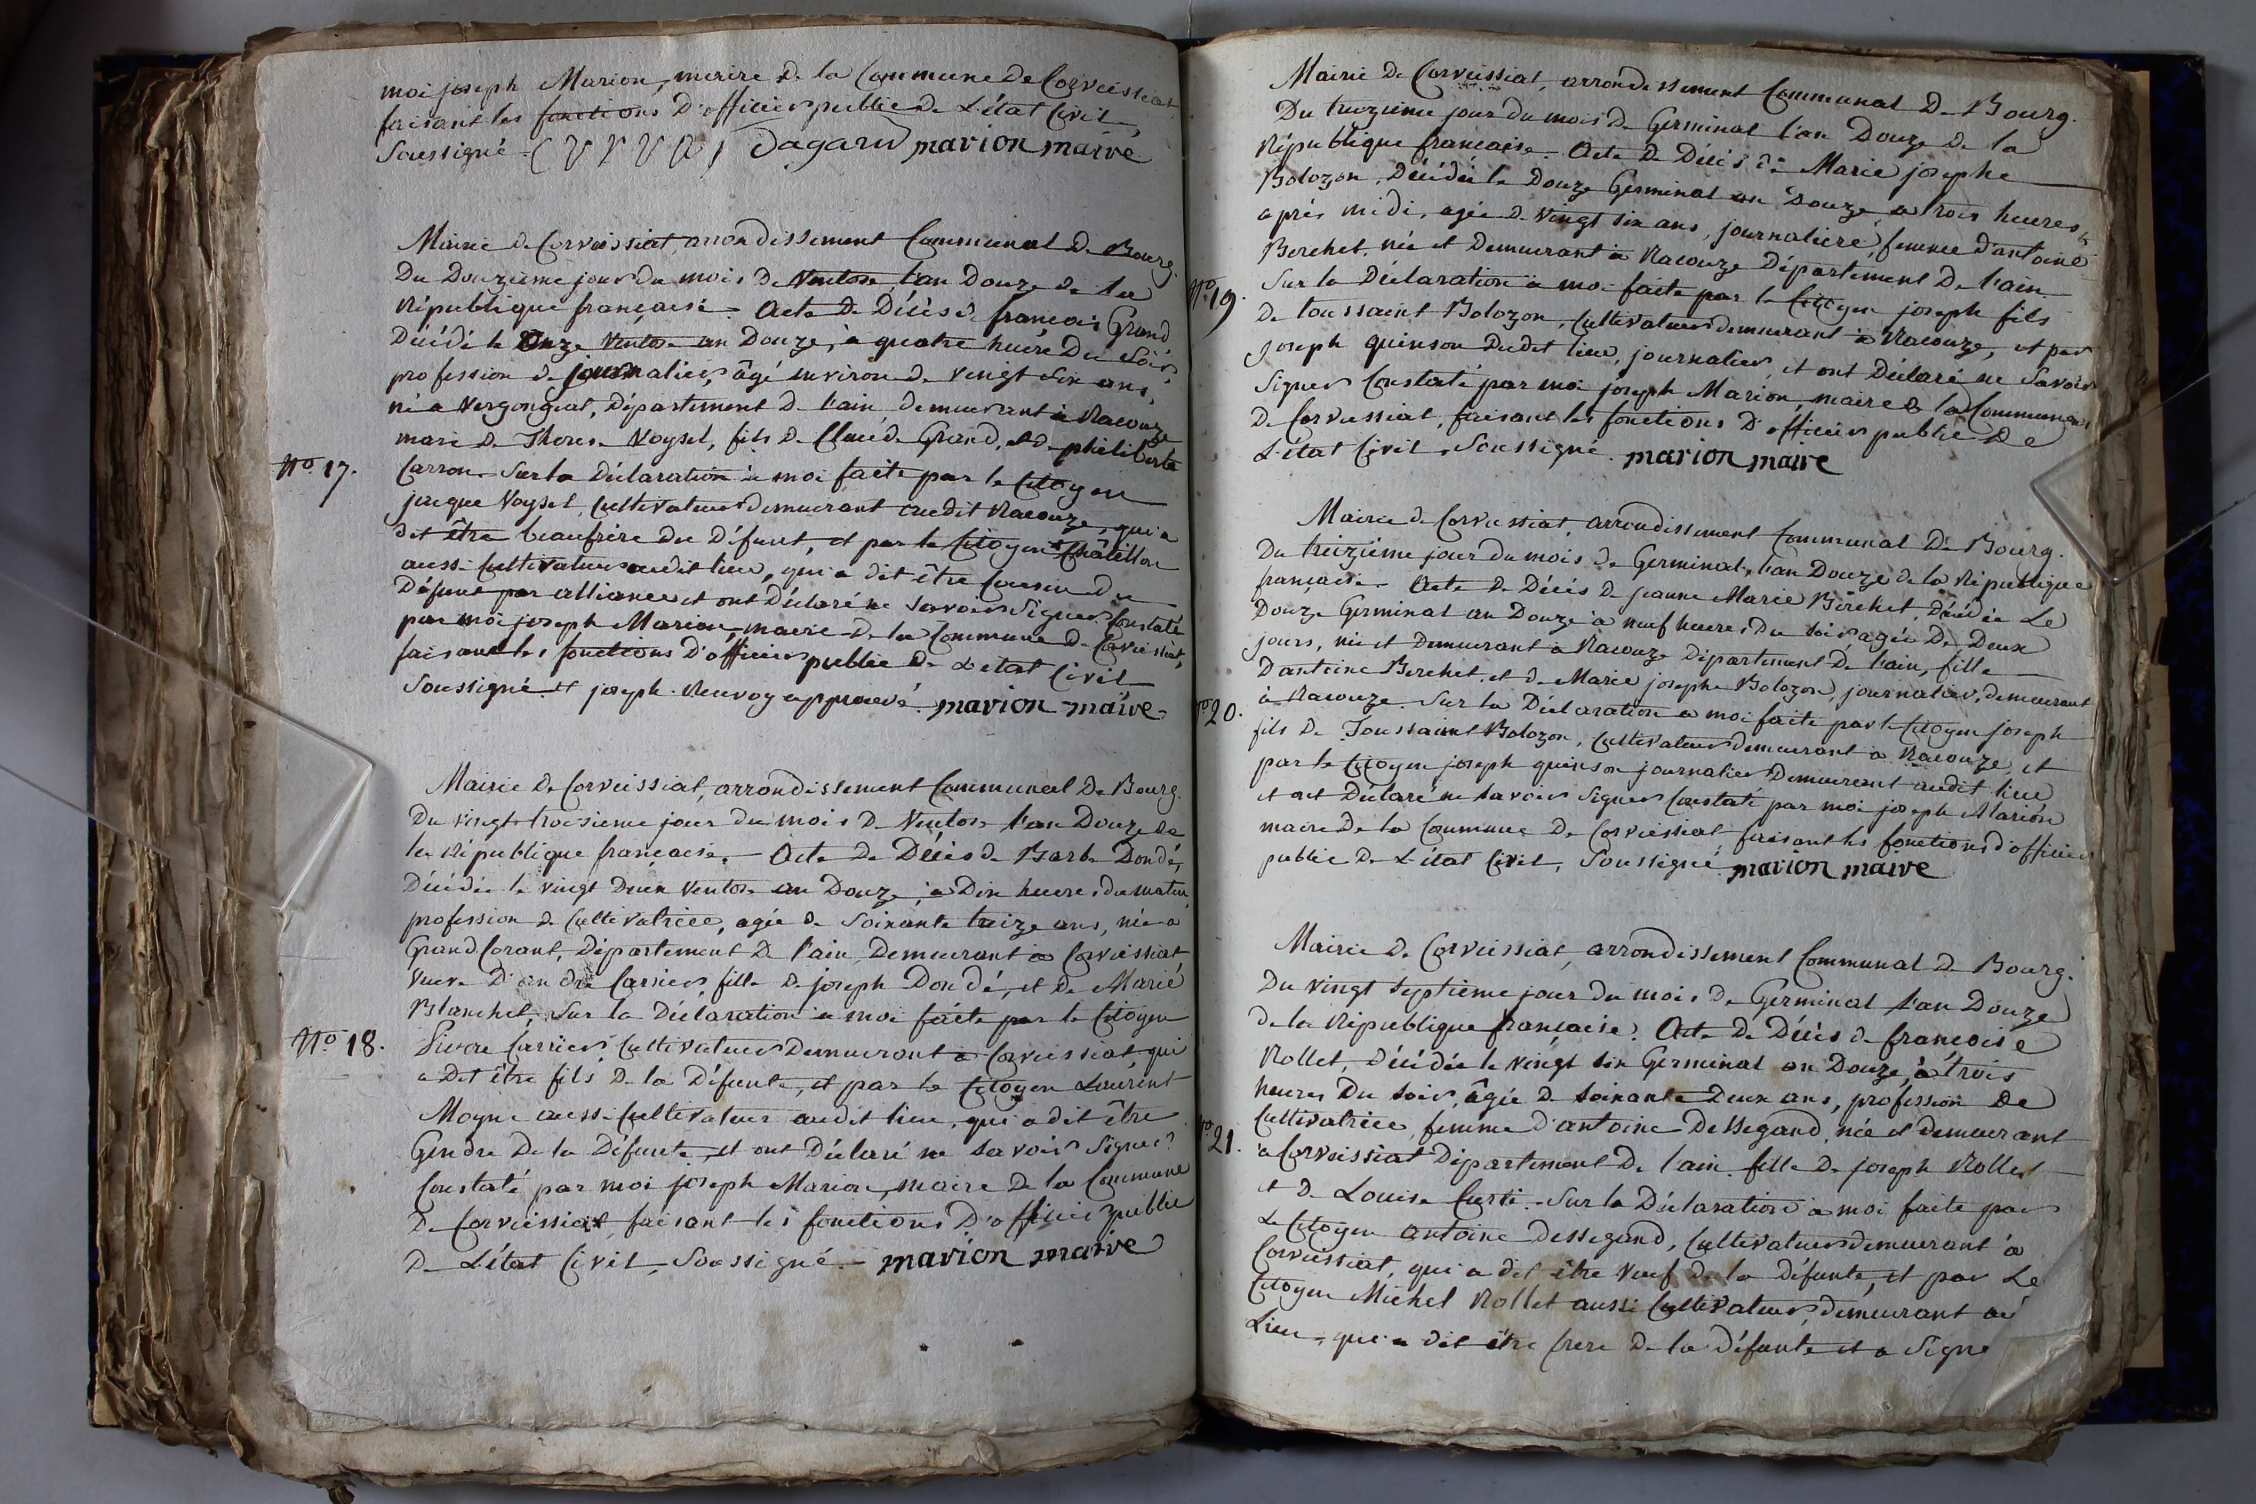 moi joseph Marion, maire de la Commune de Corveissiat
faisant les fonctions D'officier public de L'état Civil,
Soussigné Dagard marion maire
Mairie de Corveissiat arrondissement Communal De Bourg.
Du Douzieme jour du mois de Ventose l'an Douze de la
République française. Acte De Décès de françois Grand
Décédé le Onze Ventose an Douze, à quatre heure Du Soir,
profession de journalier, âgé environ de vingt six ans,
né a Vergongeat, Département De l'ain, demeurant à Racouze
mari de Therese Voysel, fils de Claude Grand, et de philiberte
No. 17.
Carron. Sur la Déclaration à moi faite par le Citoyen
jacque Voysel, Cultivateur demeurant audit Racouze, qui a
dit être beaufrère du Défunt, et par le Citoyen Châtillon
aussi Cultivateur audit lieu, qui a dit être Cousin du
Défunt par alliance et ont Déclaré ne Savoir Signer Constaté
par moi joseph Marion, maire de la Commune de Corveissiat,
faisant les fonctions D'officier public de L'état Civil
Soussigné et joseph. Renvoy approuvé. marion maire
Mairie De Corveissiat, arrondissement Communal De Bourg.
Du vingt troisieme jour du mois De Ventose l'an Douze de
la République française. Acte De Décès de Barbe Dondé,
Décédée le vingt Deux Ventose an Douze, à Dix heures du matin
profession de Cultivatrice, agée de Soixante treize ans, née à
Grand Corant, Département De l'ain, Demeurant à Corveissiat
veuve D'andré Carrier, fille De joseph Dondé, et De Marie
Blanchet, Sur la Déclaration à moi faite par le Citoyen
No. 18.
Pierre Carrier, Cultivateur Demeurant à Corveissiat qui
a Dit être fils De la Défunte, et par le Citoyen Laurent
Moyne aussi Cultivateur audit lieu, qui a dit être
Gendre De la Défunte, et ont Déclaré ne Savoir Signer
Constaté par moi joseph Marion, maire de la Commune
De Corveissiat, faisant les fonctions D'officier public
De L'état Civil, Soussigné. marion maire
Mairie De Corveissiat, arrondissement Communal De Bourg.
Du treizieme jour du mois De Germinal l'an Douze De la
République française. Acte De Décès de Marie josephe
Bolozon, Décédée le Douze Germinal an Douze à trois heures
après midi, agée de vingt six ans, journaliere, femme d'antoine
Berchet, née et Demeurant à Racouze Département De l'ain
No. 19.
Sur la Déclaration à moi faite par le Citoyen joseph fils
De toussaint Bolozon, Cultivateur demeurant à Racouze, et par
joseph quinson dudit lieu, journalier, et ont Déclaré ne Savoir
Signer Constaté par moi joseph Marion, maire de la Commune
De Corveissiat, faisant les fonctions D'officier public De
L'état Civil, Soussigné. marion maire
Mairie de Corveissiat, arrondissement Communal De Bourg.
Du treizième jour du mois de Germinal, l'an Douze de la République
française. Acte De Décès De jeanne Marie Berchet, Décédée Le
Douze Germinal an Douze à neuf heures Du soir, agée De Deux
jours, née et Demeurant à Racouze Département De l'ain, fille
D'antoine Berchet, et de Marie josephe Bolozon, journalier, demeurant
No 20.
à Racouze. Sur la Déclaration à moi faite par le Citoyen joseph
fils De Toussaint Bolozon, Cultivateur demeurant à Racouze, et
par le Citoyen joseph quinson journalier Demeurant audit lieu
et ont Déclaré ne savoir Signer Constaté par moi joseph Marion
maire De la Commune De Corveissiat faisant les fonctions d'officier
public De L'état Civil, Soussigné marion maire
Mairie De Corveissiat, arrondissement Communal De Bourg.
Du vingt Septième jour du mois De Germinal l'an Douze
de la République française. Acte De Décès de françoise
Rollet, Décédée le vingt six Germinal an Douze, à trois
heures Du Soir, âgée de Soixante Deux ans, profession De
Cultivatrice, femme d'antoine Dessegand, née et demeurant
No 21.
à Corveissiat Département De l'ain. fille De joseph Rollet
et De Louise Curti. Sur la Déclaration à moi faite par
Le Citoyen antoine Dessegand, Cultivateur demeurant à
Corveissiat, qui a dit être Veuf De la Défunte, et par Le
Citoyen Michel Rollet aussi Cultivateur, demeurant au
Lieu, qui a dit être frere De la Défunte et a Signé